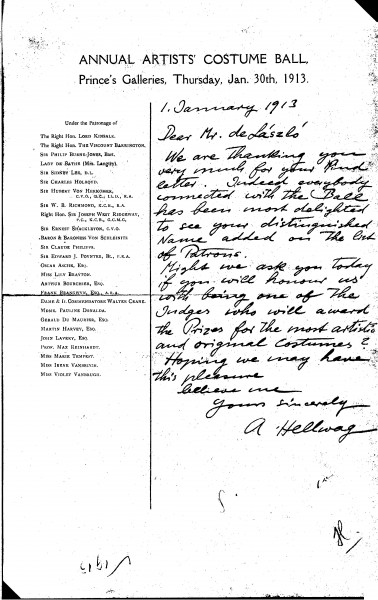 ANNUAL ARTISTS' COSTUME BALL,
Prince's Galleries, Thursday, Jan. 30th, 1913.
Under the Patronage of
The Right Hon. Lord Kinsale.
The Right Hon. The Viscount Barrington.
Sir Philip Burne-Jones, Bart.
Lady de Bathe (Mrs. Langtry).
Sir Sidney Lee, D.L.
Sir Charles Holroyd.
Sir Hubert Von Herkomer,
C.V.O., D.C.L., LL.D., R.A.
Sir W. B. Richmond, K.C.B., R.A.
Right Hon. Sir Joseph West Ridgeway,
P.C., G.C.B., G.C.M.G.
Sir Ernest Shackleton, C.V.O.
Baron & Baroness Von Schleinitz.
Sir Claude Phillips.
Sir Edward J. Poynter, Bt., P.R.A.
Oscar Asche, Esq.
Miss Lily Brayton.
Arthur Bourchier, Esq.
Frank Brangwyn, Esq., A.R.A.
Dame & Il Commendatore Walter Crane.
Mdme. Pauline Donalda.
Gerald Du Maurier, Esq.
Martin Harvey, Esq.
John Lavery, Esq.
Prof. Max Reinhardt.
Miss Marie Tempest.
Miss Irene Vanbrugh.
Miss Violet Vanbrugh.
1. January 1913
Dear Mr. de László
We are thanking you
very much for your kind
letter. Indeed everybody
connected with the Ball
has been most delighted
to see your distinguished
Name added on the list
of Patrons.
Might we ask you today
if you will honour us
with being one of the
Judges who will award
the Prizes for the most artistic
and original Costumes?
Hoping we may have
this pleasure
believe me
Yours sincerely
A Hellwag